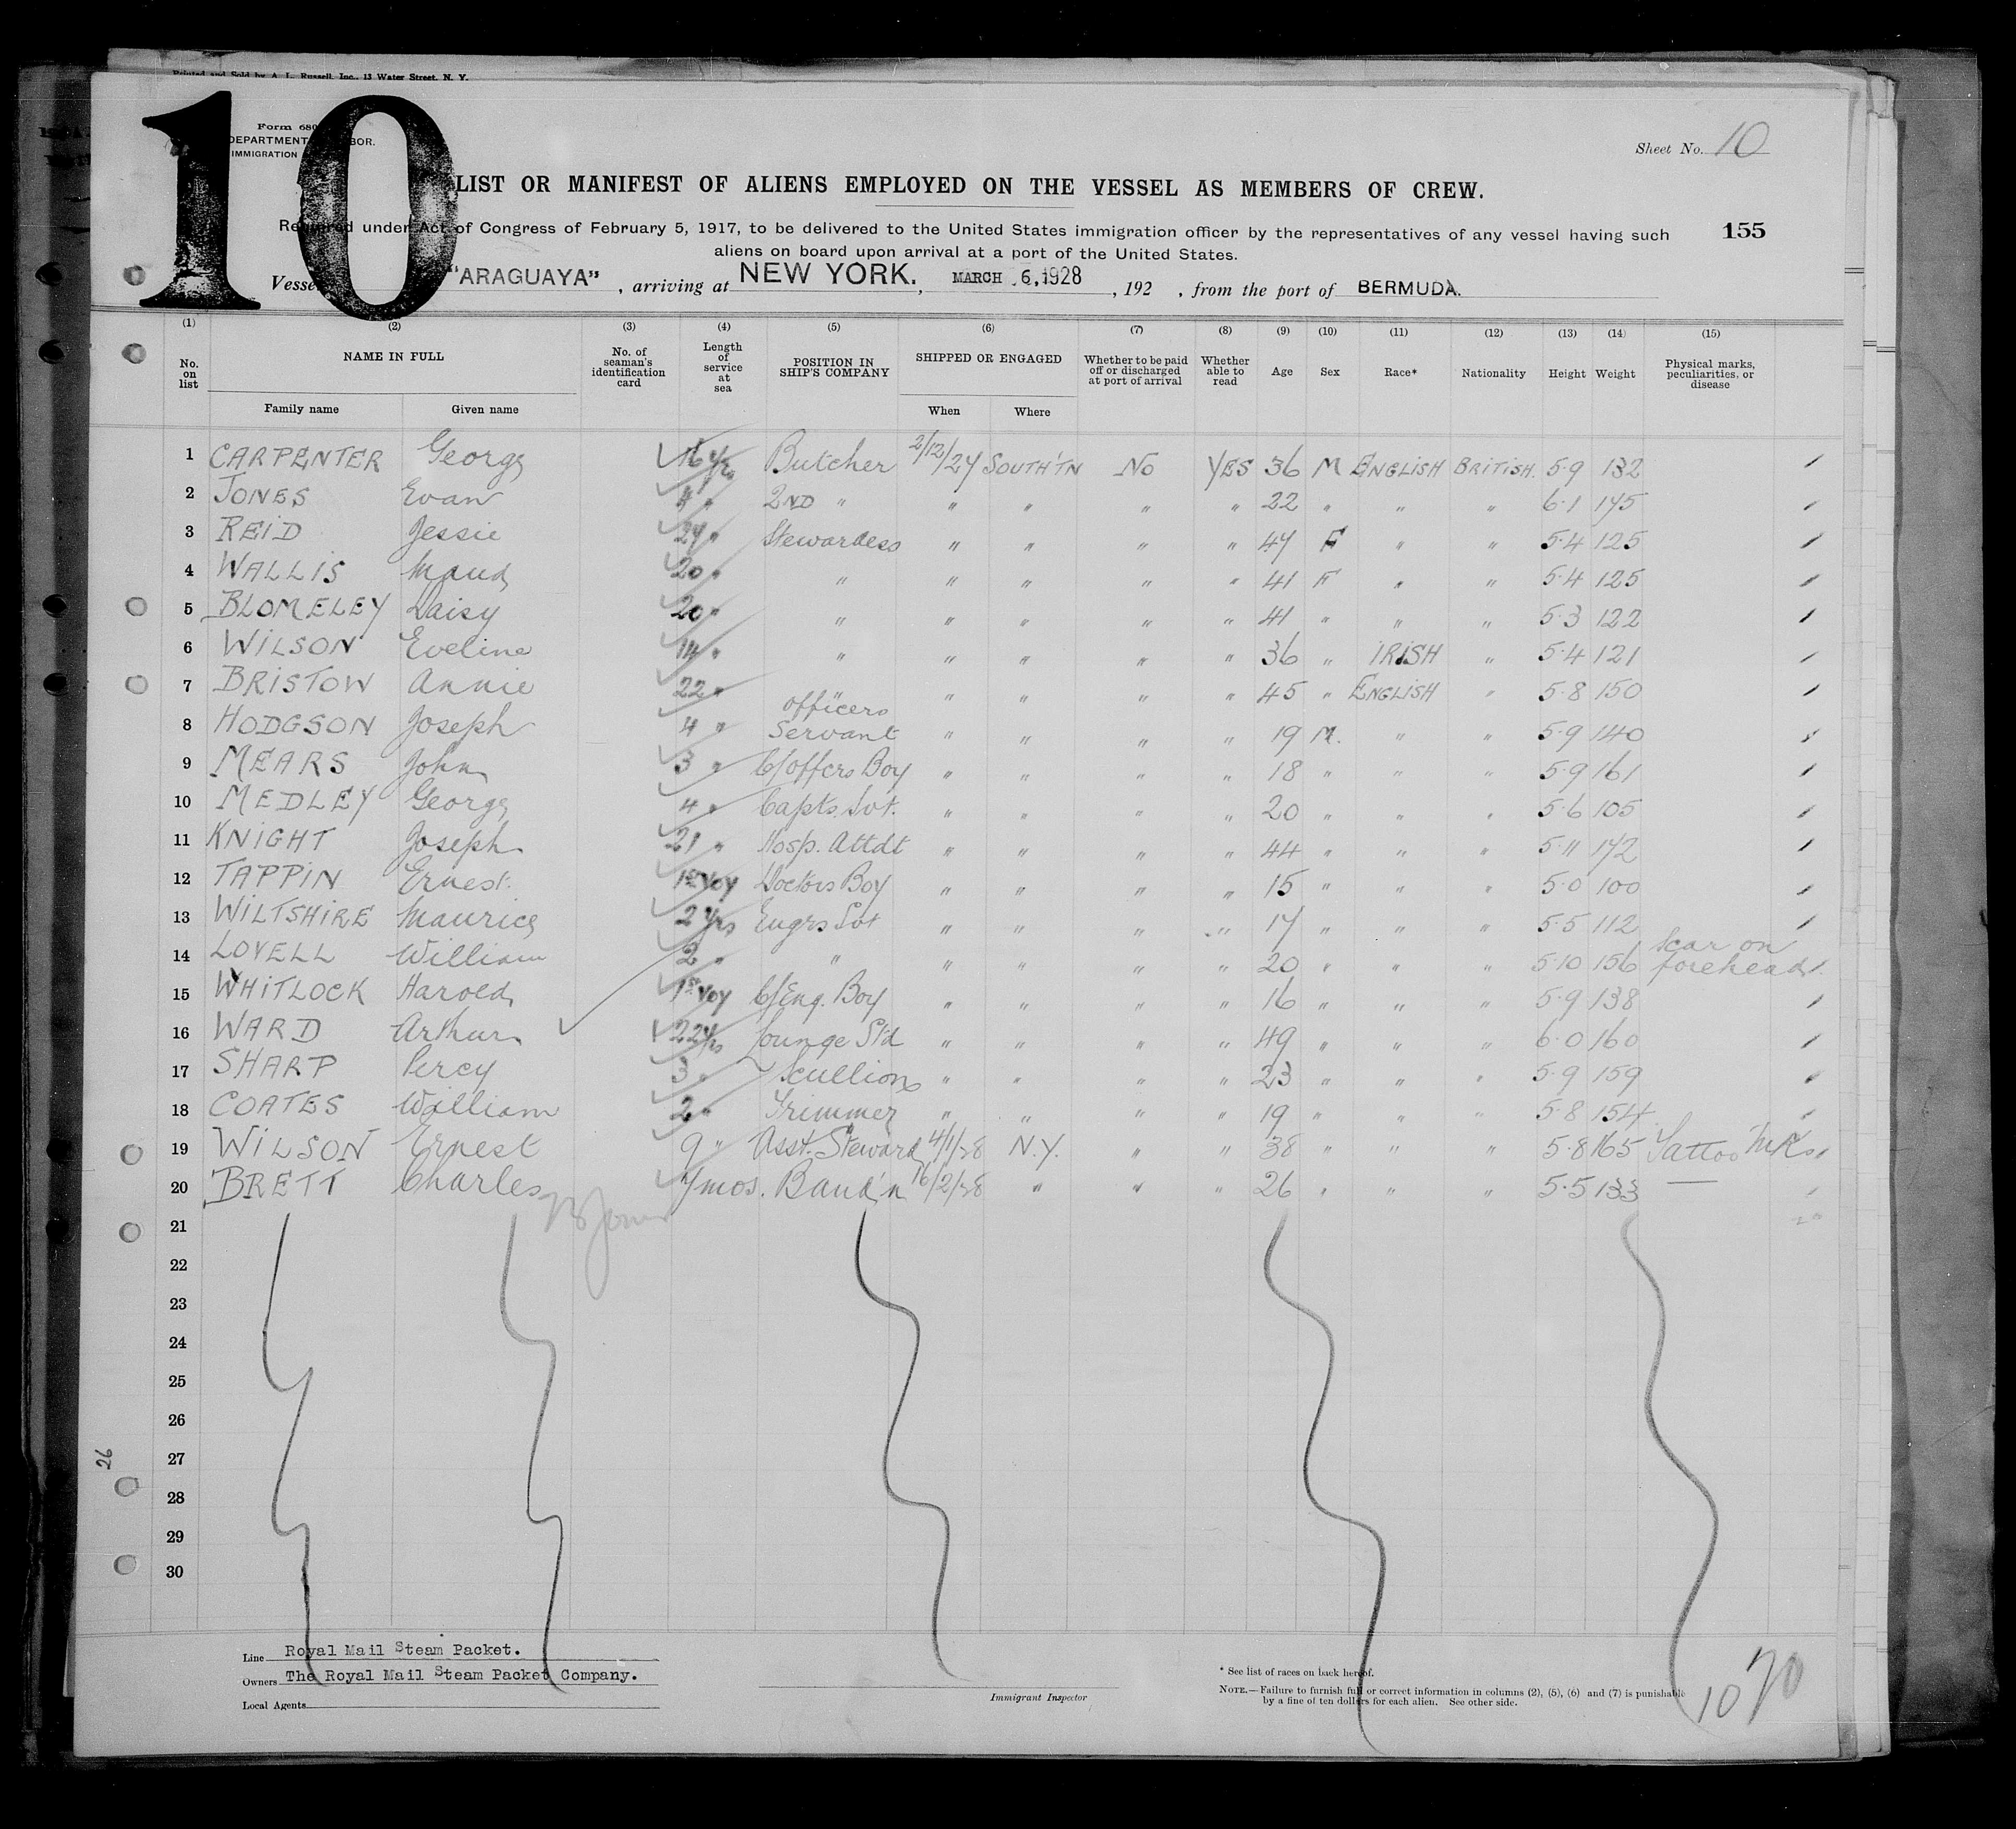 Printed and Sold by A. L. Russell, Inc., 13 Water Street, N. Y.
10
Form 680
DEPARTMENT LABOR.
IMMIGRATION
Sheet No. 10
LIST OR MANIFEST OF ALIENS EMPLOYED ON THE VESSEL AS MEMBERS OF CREW.
Required under Act of Congress of February 5, 1917, to be delivered to the United States immigration officer by the representatives of any vessel having such
155
aliens on board upon arrival at a port of the United States.
Vessel "ARAGUAYA", arriving at NEW YORK., MARCH 6, 1928, 192 , from the port of BERMUDA.
(1) (2) (3) (4) (5) (6) (7) (8) (9) (10) (11) (12) (13) (14) (15)
No. on list NAME IN FULL No. of seaman's identification card Length of service at sea POSITION IN SHIP'S COMPANY SHIPPED OR ENGAGED Whether to be paid off or discharged at port of arrival Whether able to read Age Sex Race* Nationality Height Weight Physical marks, peculiarities, or disease
Family name Given name When Where
1 CARPENTER George 16 yrs Butcher 2/12/27 SOUTH'TN No YES 36 M ENGLISH BRITISH. 5.9 132
2 JONES Evan 4 " 2ND " " " " " 22 " " " 6.1 175
3 REID Jessie 27 " Stewardess " " " " 47 F " " 5.4 125
4 WALLIS Maud 20 " " " " " " 41 F " " 5.4 125
5 BLOMELEY Daisy 20 " " " " " " 41 " " " 5.3 122
6 WILSON Eveline 14 " " " " " " 36 " IRISH " 5.4 121
7 BRISTOW Annie 22 " " " " " " 45 " ENGLISH " 5.8 150
8 HODGSON Joseph 4 " officers Servant " " " " 19 M. " " 5.9 140
9 MEARS John 3 " C/offcrs Boy " " " " 18 " " " 5.9 161
10 MEDLEY George 4 " Capts. Svt. " " " " 20 " " " 5.6 105
11 KNIGHT Joseph 21 " Hosp. Attdt " " " " 44 " " " 5.11 172
12 TAPPIN Ernest. 1st Voy Doctors Boy " " " " 15 " " " 5.0 100
13 WILTSHIRE Maurice 2 yrs Engrs Svt " " " " 17 " " " 5.5 112
14 LOVELL William 2 " " " " " " 20 " " " 5.10 156 Scar on forehead.
15 WHITLOCK Harold 1st Voy C/Eng. Boy " " " " 16 " " " 5.9 138
16 WARD Arthur 22 yrs Lounge Std " " " " 49 " " " 6.0 160
17 SHARP Percy 3 " Scullion " " " " 23 " " " 5.9 159
18 COATES William 2 " Trimmer " " " " 19 " " " 5.8 154
19 WILSON Ernest 9 " Asst. Steward 4/1/28 N.Y. " " 38 " " " 5.8 165 Tattoo Mks
20 BRETT Charles 7 mos. Band'n 16/2/28 " " " 26 " " " 5.5 133 —
21
22
23
24
25
26
27
28
29
30
26
Line Royal Mail Steam Packet.
Owners The Royal Mail Steam Packet Company.
Local Agents
Immigrant Inspector
* See list of races on back hereof.
NOTE.—Failure to furnish full or correct information in columns (2), (5), (6) and (7) is punishable
by a fine of ten dollars for each alien. See other side.
10